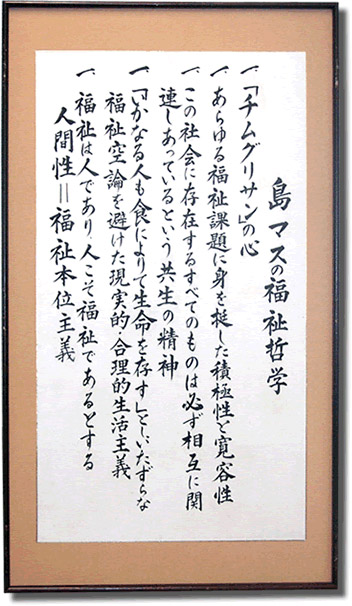 島マスの福祉哲学
一、「チムグリサン」の心
一、あらゆる福祉課題に身を挺した積極性と寛容性
一、この社会に存在するすべてのものは必ず相互に関
連しあっているという共生の精神
一、「いかなる人も食によりて生命を存す」とし、いたずらな
福祉空論を避けた現実的、合理的生活主義
一、福祉は人であり、人こそ福祉であるとする
人間性＝福祉本位主義